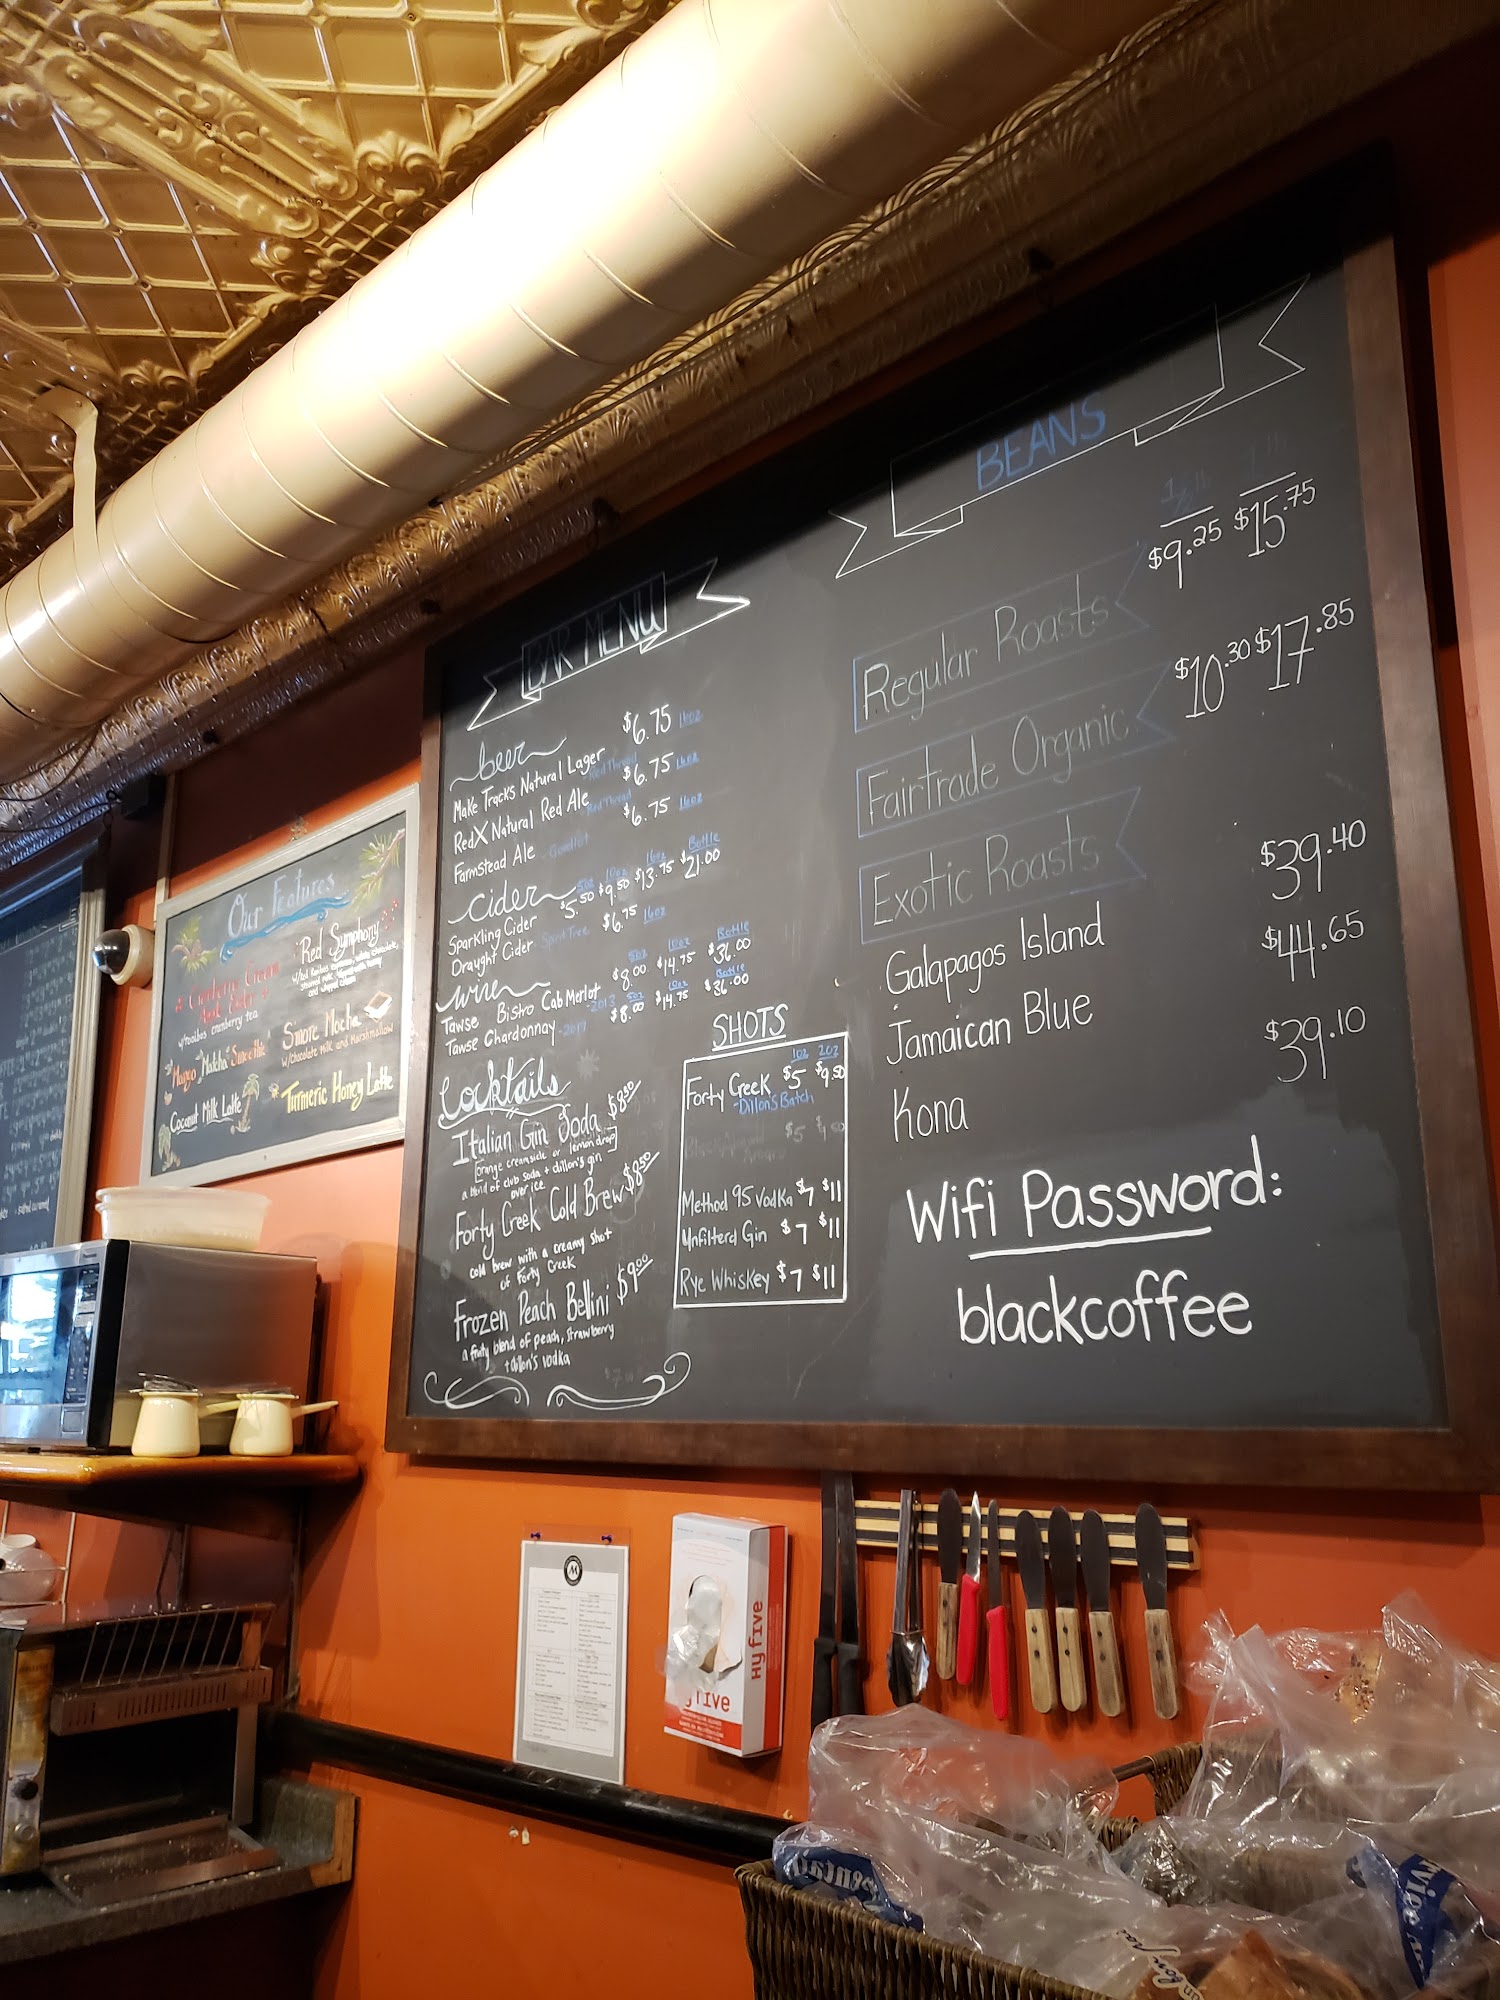 Our Features
Cranberry Cream
w/rooibos cranberry tea
Mango Matcha Smoothie
Coconut Milk Latte
Red Symphony
w/Red Rooibos espresso, white chocolate,
steamed milk, topped with honey
and whipped cream
S'more Mocha
w/Chocolate Milk and Marshmallow
Turmeric Honey Latte
BAR MENU
beer
Make Tracks Natural Lager - Red Thread $6.75 16oz
RedX Natural Red Ale - Red Thread $6.75 16oz
Farmstead Ale - Goodlot $6.75 16oz
cider 5oz 10oz 16oz Bottle
Sparkling Cider $5.50 $9.50 $13.75 $21.00
Draught Cider - Spirit Tree $6.75 16oz
wine 5oz 10oz Bottle
Tawse Bistro Cab Merlot - 2013 $8.00 $14.75 $36.00
5oz 10oz Bottle
Tawse Chardonnay - 2017 $8.00 $14.75 $36.00
Cocktails
Italian Gin Soda $8.50
[orange creamsicle or lemon drop]
a blend of club soda + dillon's gin
over ice
Forty Creek Cold Brew $8.50
cold brew with a creamy shot
of Forty Creek
Frozen Peach Bellini $9.00
a fruity blend of peach, strawberry
+ dillon's vodka
SHOTS
1oz 2oz
Forty Creek $5 $9.50
- Dillon's Batch
$5
Method 95 Vodka $7 $11
Unfilterd Gin $7 $11
Rye Whiskey $7 $11
BEANS
1/2 lb 1 lb
Regular Roasts $9.25 $15.75
Fairtrade Organic $10.30 $17.85
Exotic Roasts
Galapagos Island $39.40
Jamaican Blue $44.65
Kona $39.10
Wifi Password:
blackcoffee
Panasonic
M
Hyfive
yfive